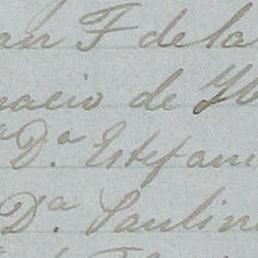 an F de la
nacio de
Dª. Estefan
Dª. Paulin